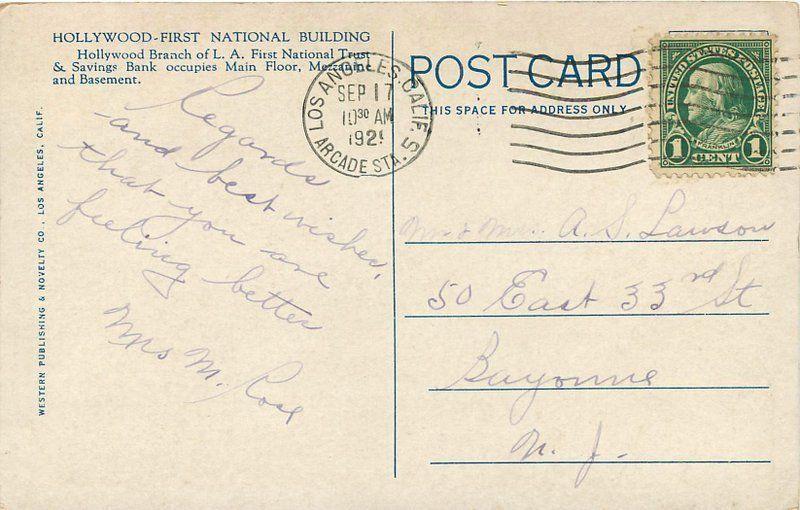 HOLLYWOOD-FIRST NATIONAL BUILDING
Hollywood Branch of L. A. First National Trust
& Savings Bank occupies Main Floor, Mezzanine
and Basement.
WESTERN PUBLISHING & NOVELTY CO. LOS ANGELES, CALIF.
Regards
and best wishes,
that you are
feeling better
Mrs M. Rose
LOS ANGELES, CALIF.
SEP 17
10 30 AM
192
ARCADE STA. 5
POST CARD
THIS SPACE FOR ADDRESS ONLY
UNITED STATES POSTAGE
FRANKLIN
1 CENT 1
Mr & Mrs. A. S. Lawson
50 East 33rd St
Bayonne
N. J.